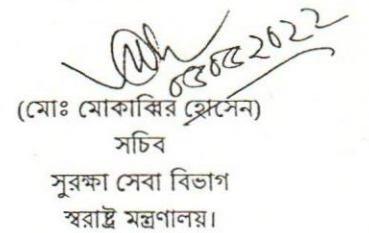 ০৫০৫২০২২
(মোঃ মোকাব্বির হোসেন)
সচিব
সুরক্ষা সেবা বিভাগ
স্বরাষ্ট্র মন্ত্রণালয়।